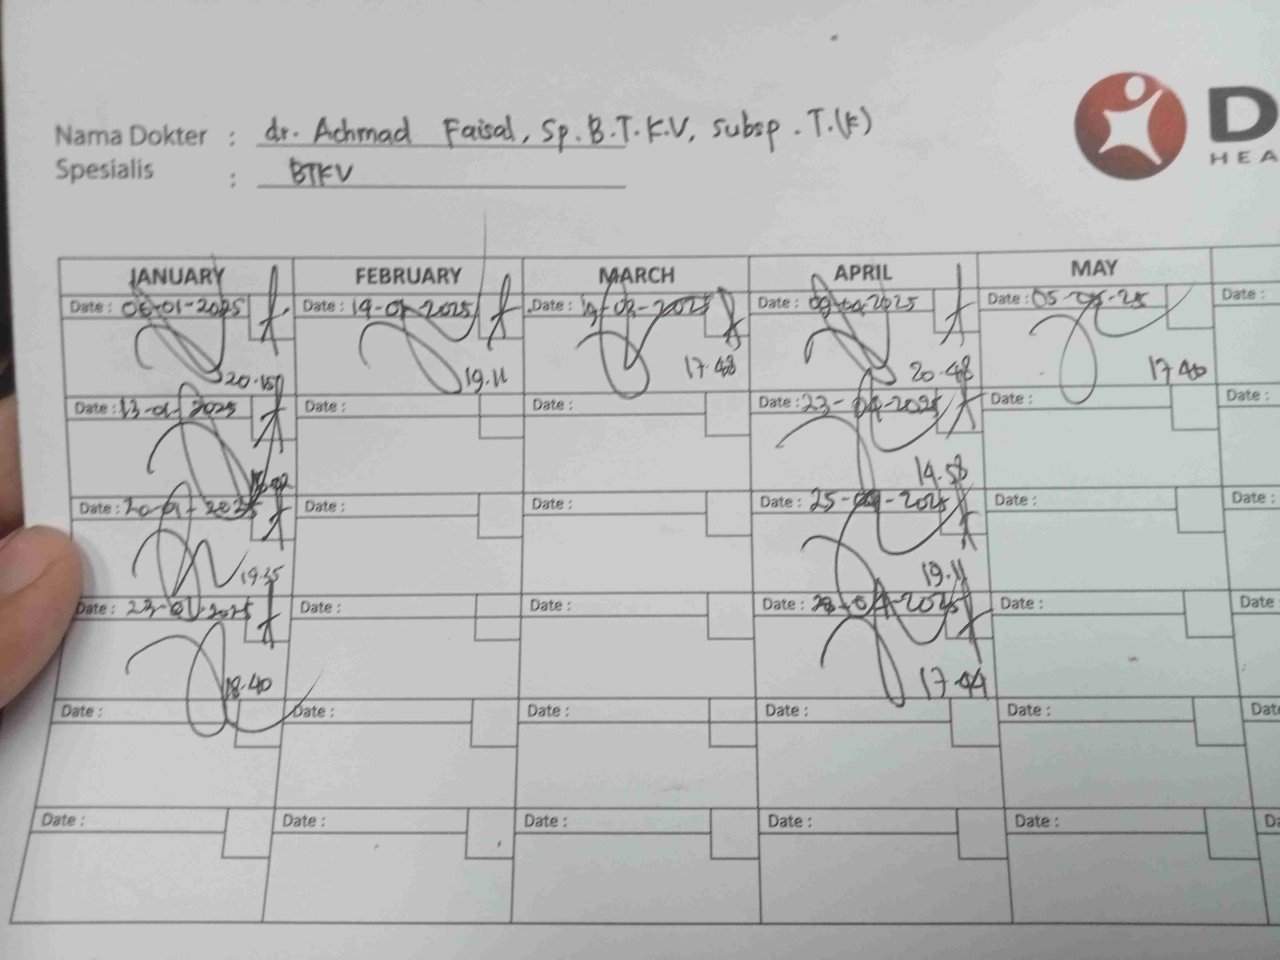 Nama Dokter : dr. Achmad Faisal, Sp.B.T.K.V, Subsp. T.(K)
Spesialis : BTKV
D
HEA
JANUARY FEBRUARY MARCH APRIL MAY
Date : 06-01-2025 Date : 19-02-2025 Date : 19-03-2025 Date : 09-04-2025 Date : 05-05-25 Date :
20.15 19.11 17.48 20.48 17.40
Date : 13-01-2025 Date : Date : Date : 23-04-2025 Date : Date :
14.58
Date : 20-01-2025 Date : Date : Date : 25-04-2025 Date : Date :
19.35 19.11
Date : 23-01-2025 Date : Date : Date : 28-04-2025 Date : Date
18.40 17.44
Date : Date : Date : Date : Date : Dat
Date : Date : Date : Date : Date : D